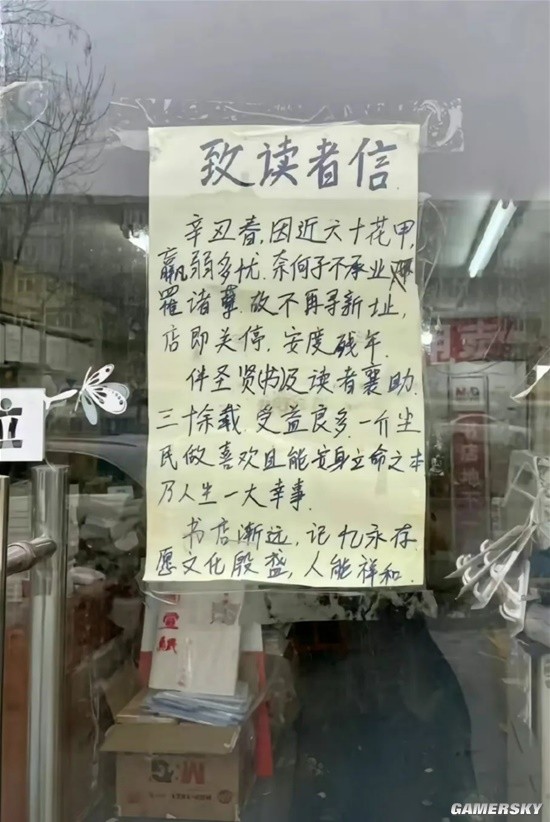 致读者信
辛丑春,因近六十花甲,
羸弱多忧.奈何子不承业
罹诸孽.故不再寻新址,
店即关停,安度残年.
伴圣贤(书)及读者襄助.
三十余载,受益良多.一介坐
民做喜欢且能安身立命之本
乃人生一大幸事.
书店渐远,记忆永存
愿文化殷盛,人能祥和.
宣紙
M&G
M&G
GAMERSKY